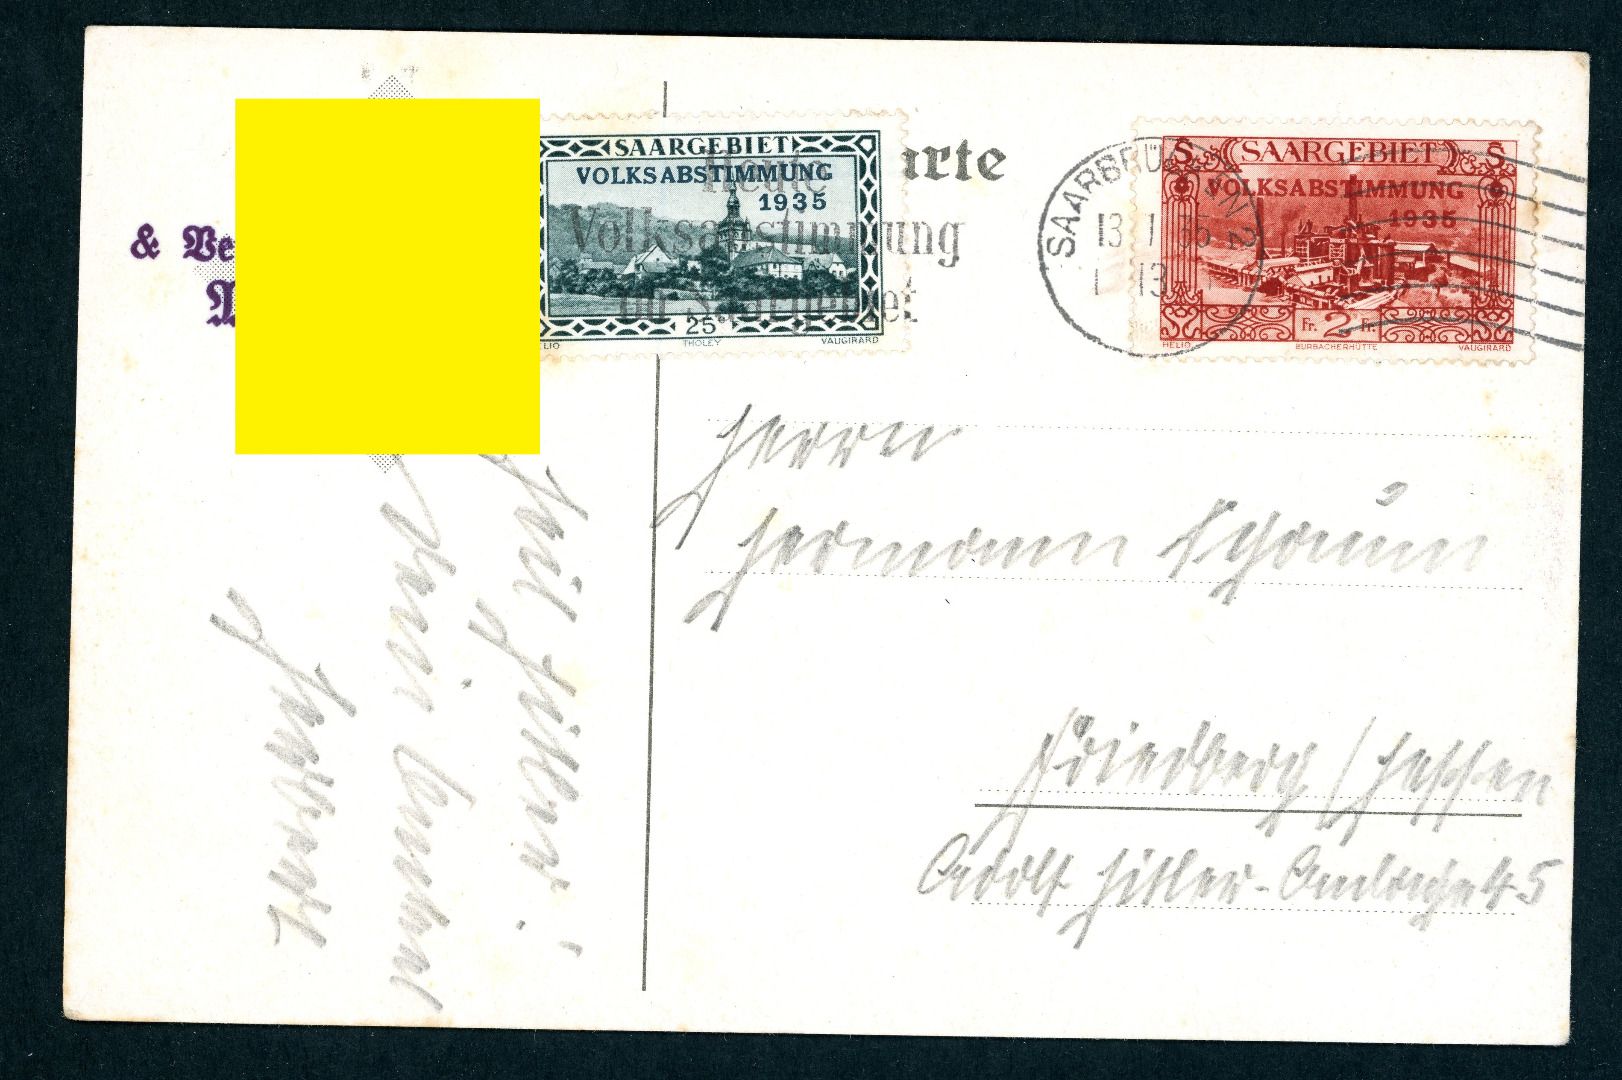 SAARGEBIET
VOLKSABSTIMMUNG
1935
25
HELIO THOLEY VAUGIRARD
Heute
Volksabstimmung
im Saargebiet
arte
SAARBRÜCKEN 2
13 1 35
13
S SAARGEBIET S
VOLKSABSTIMMUNG
1935
Fr. 2 Fr.
HELIO BURBACHERHÜTTE VAUGIRARD
& Ve
Heil Hitler!
Dein
Herrn
Hermann
Friedberg / Hessen
Adolf Hitler-Anlage 45